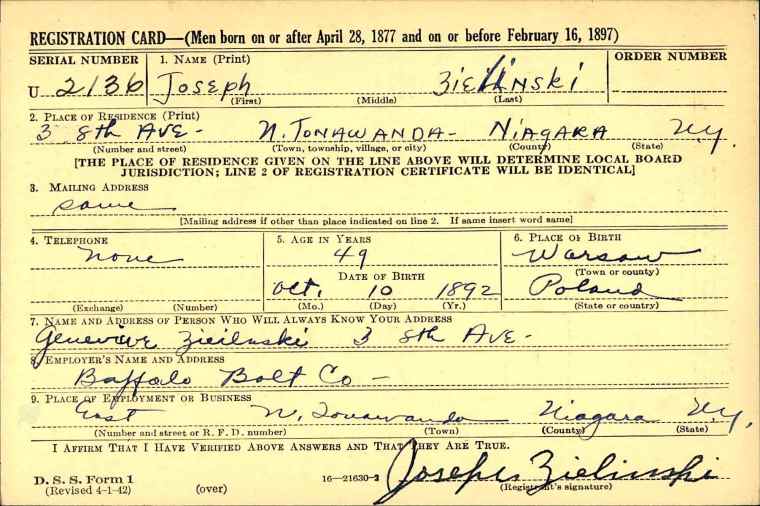 REGISTRATION CARD—(Men born on or after April 28, 1877 and on or before February 16, 1897)
SERIAL NUMBER 1. NAME (Print) ORDER NUMBER
U 2136 JOSEPH ZIELINSKI
(First) (Middle) (Last)
2. PLACE OF RESIDENCE (Print)
3 8th AVE- N. TONAWANDA- NIAGARA N.Y.
(Number and street) (Town, township, village, or city) (County) (State)
[THE PLACE OF RESIDENCE GIVEN ON THE LINE ABOVE WILL DETERMINE LOCAL BOARD
JURISDICTION; LINE 2 OF REGISTRATION CERTIFICATE WILL BE IDENTICAL]
3. MAILING ADDRESS
same
[Mailing address if other than place indicated on line 2. If same insert word same]
4. TELEPHONE 5. AGE IN YEARS 6. PLACE OF BIRTH
none 49 Warsaw
(Town or county)
DATE OF BIRTH
Oct. 10 1892 Poland
(Exchange) (Number) (Mo.) (Day) (Yr.) (State or country)
7. NAME AND ADDRESS OF PERSON WHO WILL ALWAYS KNOW YOUR ADDRESS
Genevieve Zieilnski 3 8th AVE-
8. EMPLOYER'S NAME AND ADDRESS
Baffalo Bolt Co-
9. PLACE OF EMPLOYMENT OR BUSINESS
East N. Tonawanda Niagara N.Y.
(Number and street or R. F. D. number) (Town) (County) (State)
I AFFIRM THAT I HAVE VERIFIED ABOVE ANSWERS AND THAT THEY ARE TRUE.
Joseph Zielinski
D. S. S. Form 1
(Revised 4-1-42) (over) 16—21630-2 (Registrant's signature)